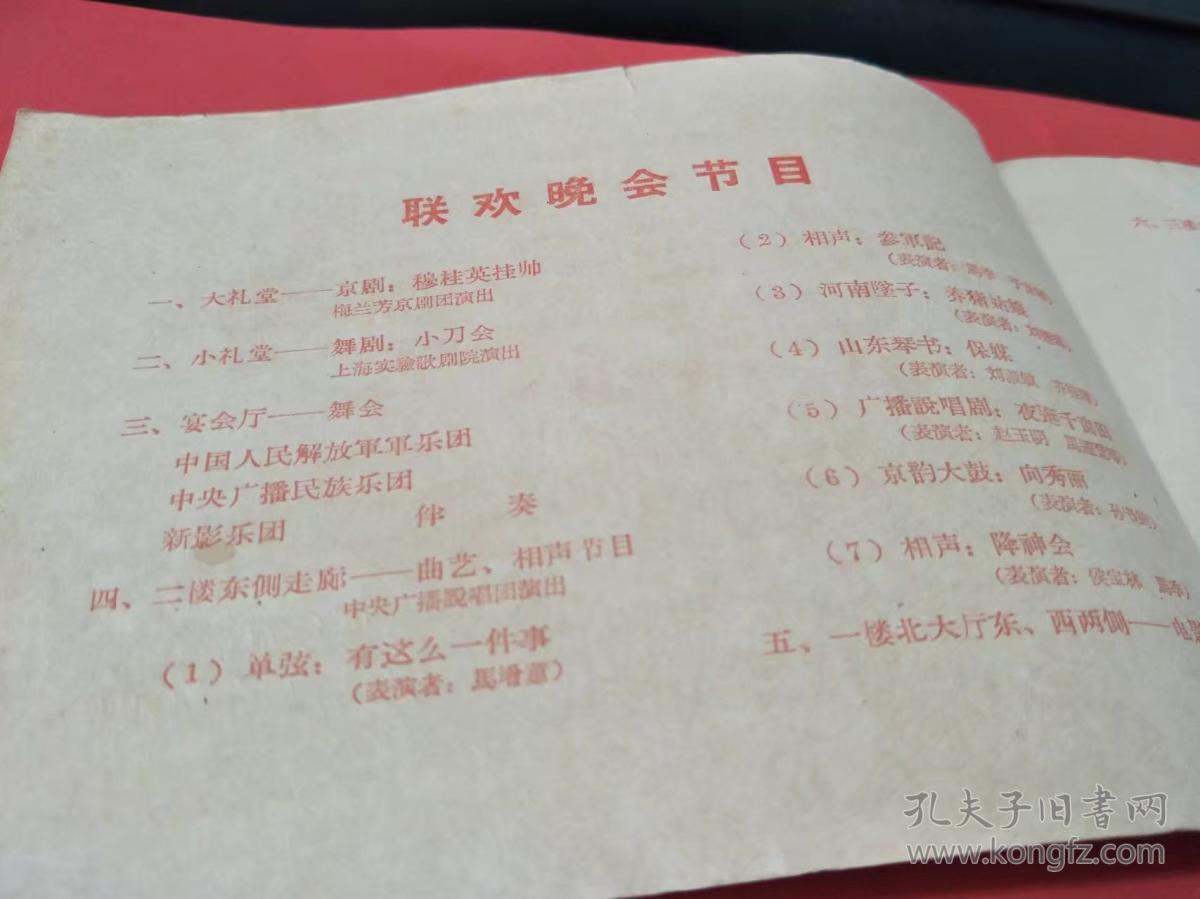 联欢晚会节目
一、大礼堂——京剧：穆桂英挂帅
梅兰芳京剧团演出
二、小礼堂——舞剧：小刀会
上海实驗歌剧院演出
三、宴会厅——舞会
中国人民解放軍軍乐团
中央广播民族乐团
新影乐团 伴奏
四、二楼东側走廊——曲艺、相声节目
中央广播說唱团演出
（1）单弦：有这么一件事
（表演者：馬增蕙）
（2）相声：参軍記
（表演者：馬季
（3）河南墜子：养猪姑娘
（表演者：
（4）山东琴书：保媒
（表演者：刘淑敏
（5）广播說唱剧：夜
（表演者：赵玉明
（6）京韵大鼓：向秀丽
（表演者：
（7）相声：降神会
（表演者：侯宝林 馬季
五、一楼北大厅东、西两側——
六、三楼
孔夫子旧書网
www.kongfz.com